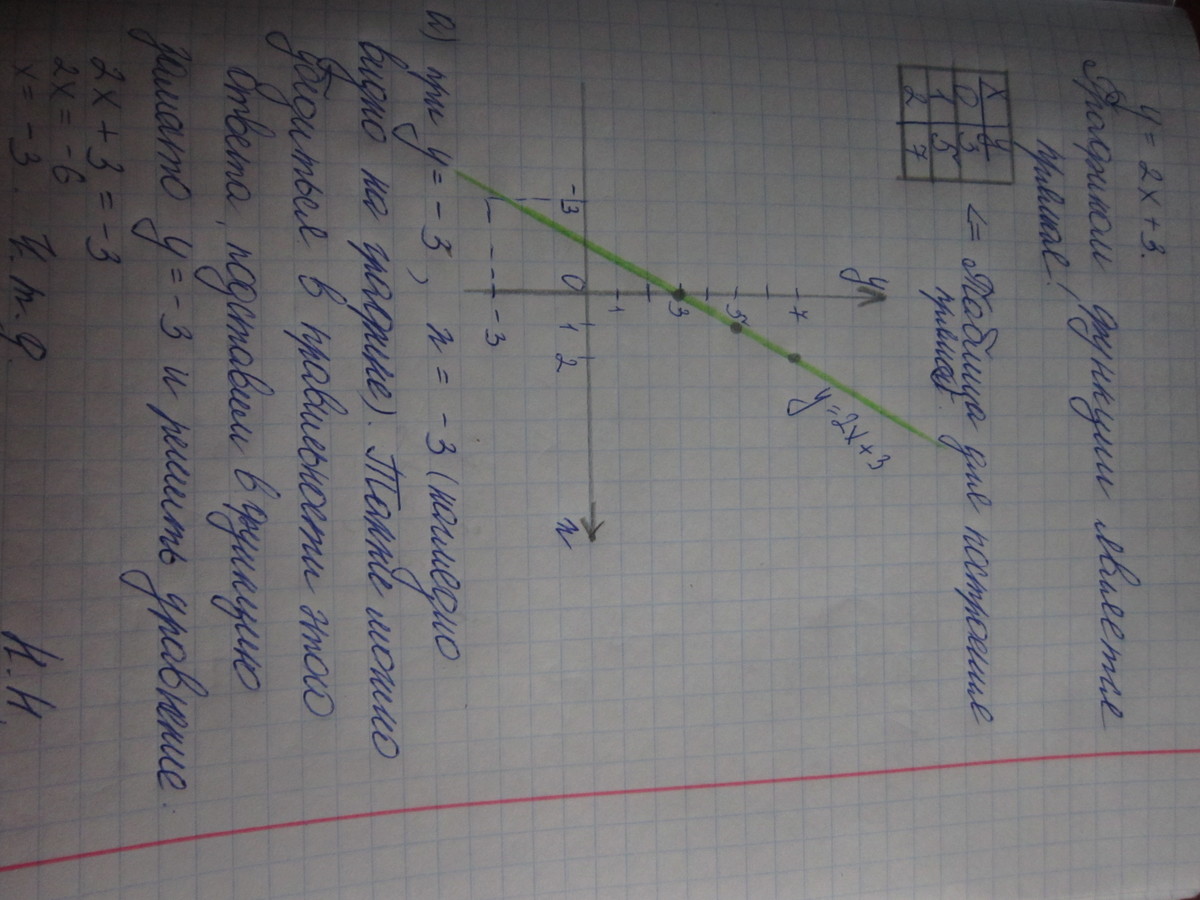 y = 2x + 3.
Графиком функции является
прямая!
x y
0 3
1 5
2 7
<= Таблица для построения
прямой.
y
7
5
3
1
-3
0
1
2
x
-3
y = 2x + 3
а) при y = -3, x = -3 (наглядно
видно на графике). Также можно
убедиться в правильности этого
ответа, подставим в функцию
заместо y = -3 и решить уравнение:
2x + 3 = -3
2x = -6
x = -3. Ч.т.д.
Н.Н.